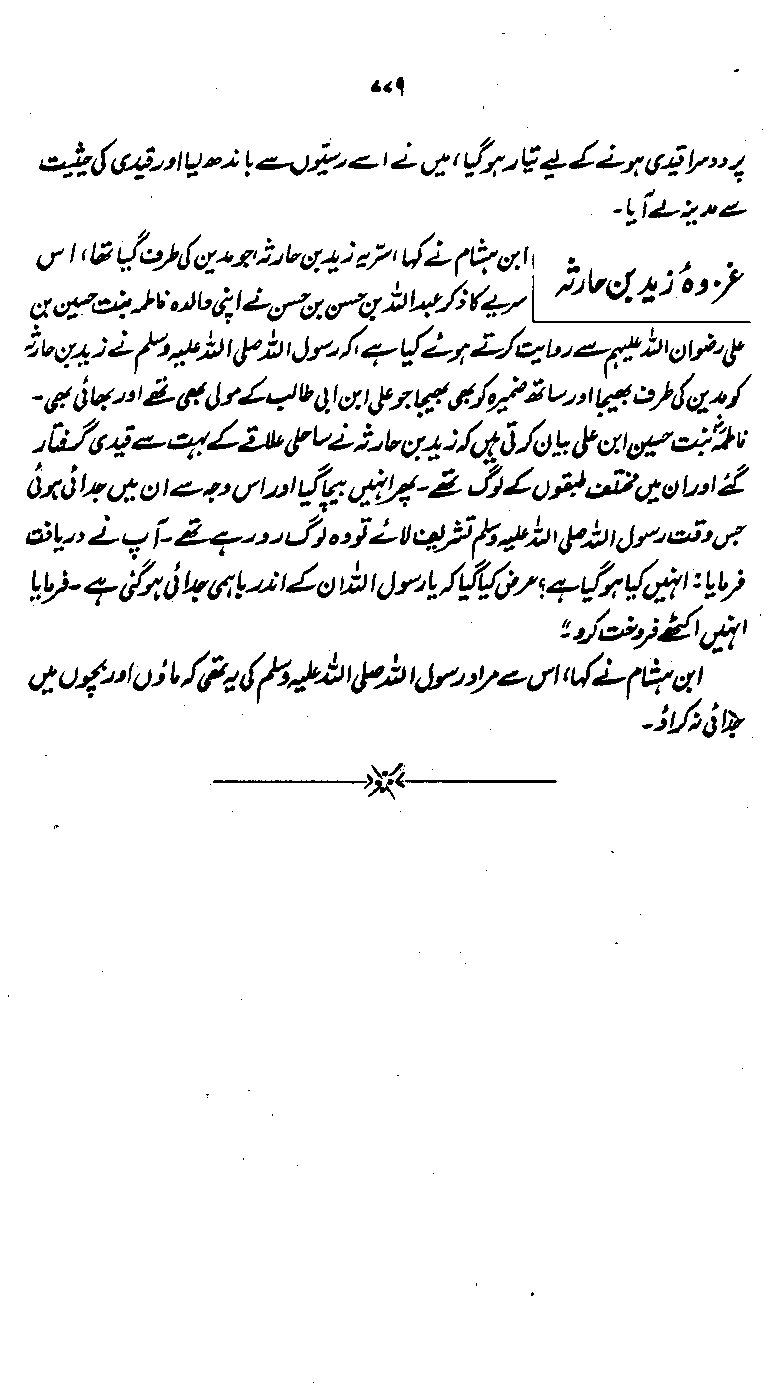 ۷۷۹
پر دوسرا قیدی ہونے کے لیے تیار ہو گیا، میں نے اسے رسیّوں سے باندھ لیا اور قیدی کی حیثیت
سے مدینہ لے آیا۔
غزوۂ زید بن حارثہ
ابن ہشام نے کہا، سریہ زید بن حارثہ جو مدین کی طرف گیا تھا، اس
سریے کا ذکر عبداللہ بن حسن بن حسن نے اپنی والدہ فاطمہ بنت حسین بن
علی رضوان اللہ علیہم سے روایت کرتے ہوئے کیا ہے، کہ رسول اللہ صلی اللہ علیہ وسلم نے زید بن حارثہ
کو مدین کی طرف بھیجا اور ساتھ ضمیرہ کو بھی بھیجا جو علی ابن ابی طالب کے مولی بھی تھے اور بھائی بھی۔
فاطمہؓ بنت حسین ابن علی بیان کرتی ہیں کہ زید بن حارثہ نے ساحلی علاقے کے بہت سے قیدی گرفتار
کئے اور ان میں مختلف طبقوں کے لوگ تھے۔ پھر انہیں بیچا گیا اور اس وجہ سے ان میں جدائی ہوئی
جس وقت رسول اللہ صلی اللہ علیہ وسلم تشریف لائے تو وہ لوگ رو رہے تھے۔ آپ نے دریافت
فرمایا: انہیں کیا ہو گیا ہے؟ عرض کیا گیا کہ یا رسول اللہ ان کے اندر باہمی جدائی ہو گئی ہے۔ فرمایا
انہیں اکٹھے فروخت کرو۔"
ابن ہشام نے کہا، اس سے مراد رسول اللہ صلی اللہ علیہ وسلم کی یہ تھی کہ ماؤں اور بچوں میں
جدائی نہ کراؤ۔